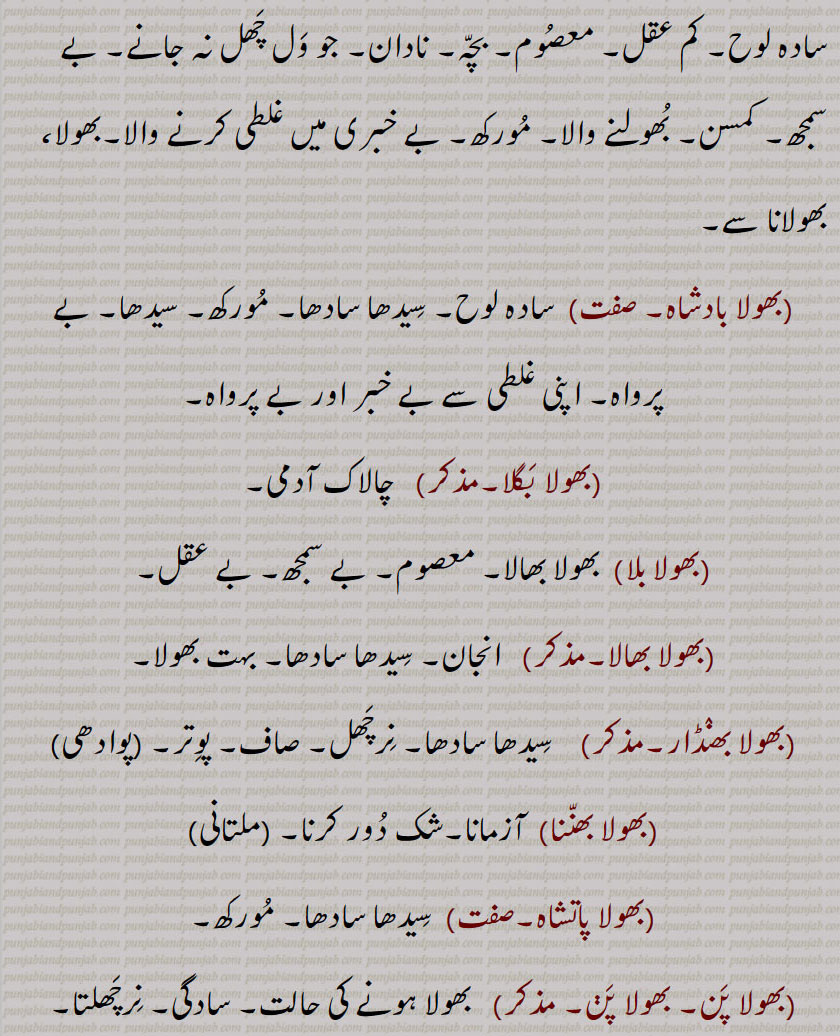 سادہ لوح۔ کم عقل۔ معصُوم۔ بچّہ۔ نادان۔ جو وَل چَھل نہ جانے۔ بے
سمجھ۔ کمسن۔ بُھولنے والا۔ مُورکھ۔ بے خبری میں غلطی کرنے والا۔بھولا،
بھولانا سے۔
(بھولا بادشاہ۔ صفت) سادہ لوح۔ سِیدھا سادھا۔ مُورکھ۔ سیدھا۔ بے
پرواہ۔ اپنی غلطی سے بے خبر اور بے پرواہ۔
(بھولا بَگلا۔مذکر) چالاک آدمی۔
(بھولا بلا) بھولا بھالا۔ معصوم۔ بے سمجھ۔ بے عقل۔
(بھولا بھالا۔مذکر) انجان۔ سِیدھا سادھا۔ بہت بھولا۔
(بھولا بھنْڈار۔مذکر) سِیدھا سادھا۔ نِرچَھل۔ صاف۔ پوِتر۔ (پوادھی)
(بھولا بھنّنا) آزمانا۔شک دُور کرنا۔ (ملتانی)
(بھولا پاتشاہ۔صفت) سِیدھا سادھا۔ مُورکھ۔
(بھولا پَن۔ بھولا پَݨ۔ مذکر) بھولا ہونے کی حالت۔ سادگی۔ نِرچَھلتا۔